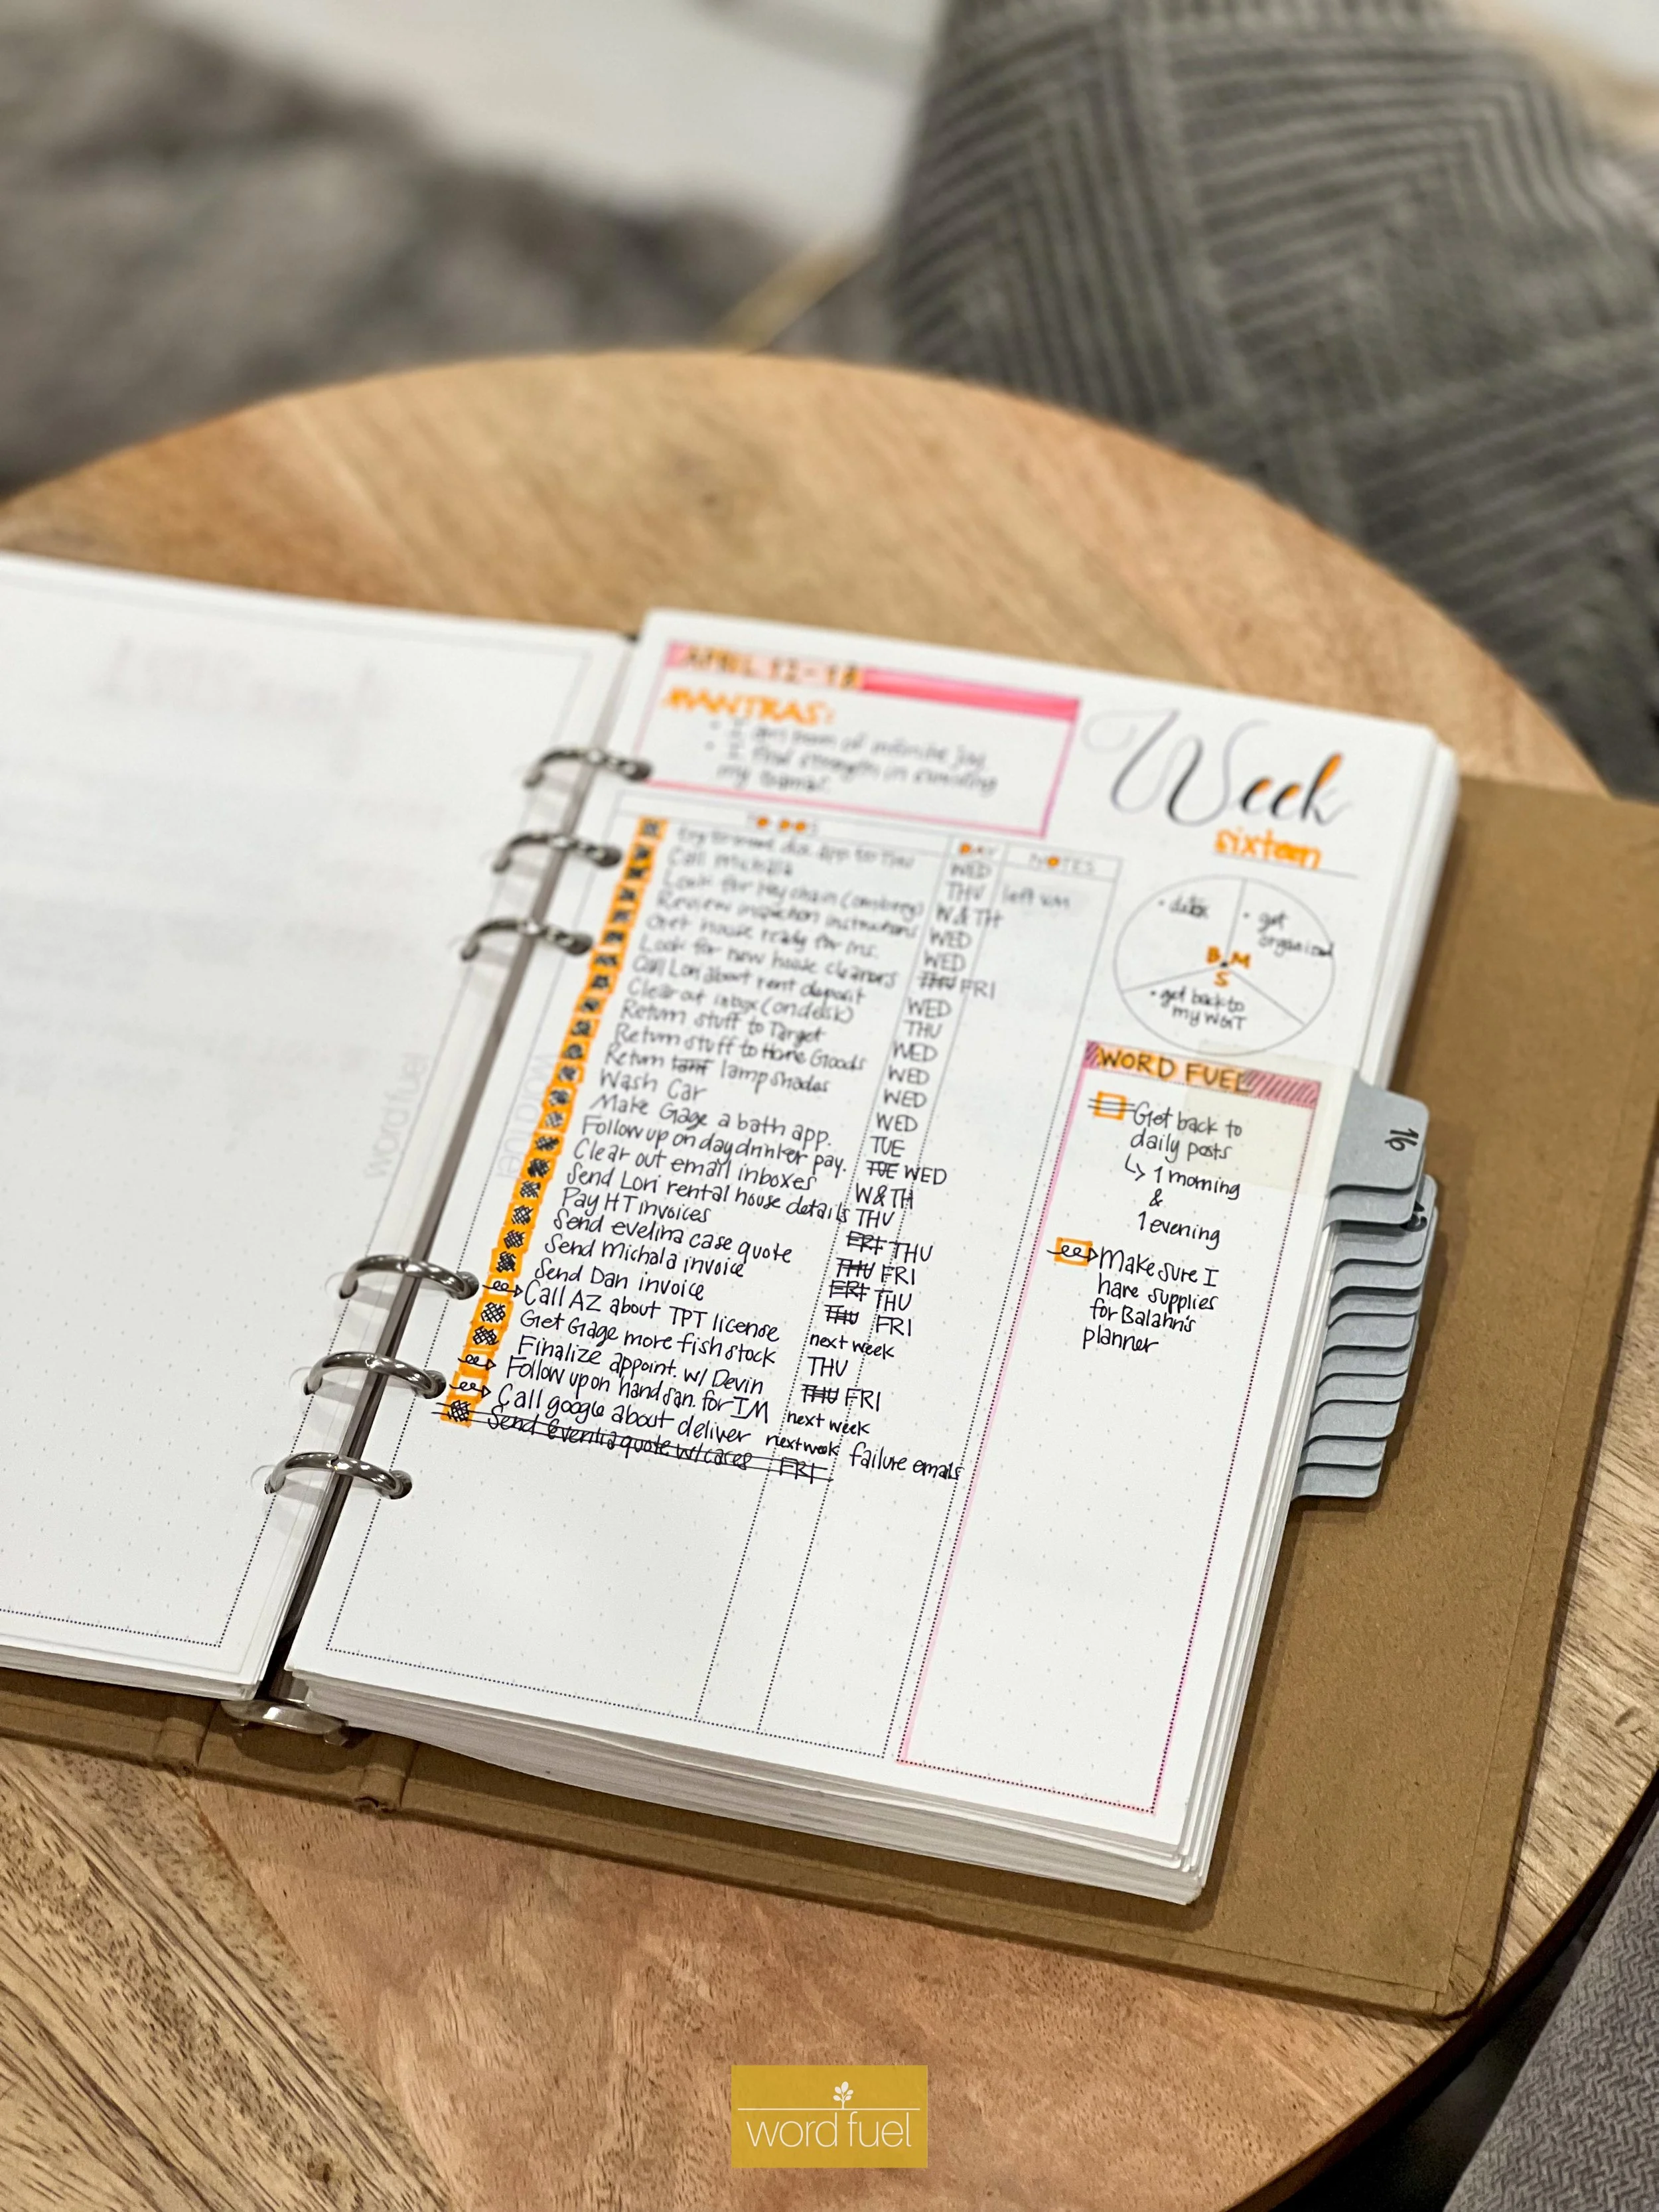 APRIL 12-18
MANTRAS:
my
Week
sixteen
TO DOS DAY NOTES
app to THU WED
Call Michala THU left VM
Look for key chain W & TH
Review inspection instructions WED
Get house ready for ins. WED
Look for new house cleaners THU FRI
Call Lori about rent deposit WED
Clear out inbox (on desk) THU
Return stuff to Target WED
Return stuff to Home Goods WED
Return lamp shades WED
Wash Car WED
Make Gage a bath app. TUE
Follow up on daydrinker pay. TUE WED
Clear out email inboxes W & TH
Send Lori rental house details THU
Pay HT invoices FRI THU
Send evelina case quote THU FRI
Send Michala invoice FRI THU
Send Dan invoice THU FRI
Call AZ about TPT license next week
Get Gage more fish stock THU
Finalize appoint. w/ Devin THU FRI
Follow up on hand san. for IM next week
Call google about deliver next week failure emails
Send quote w/ FRI
• detox
• get
organized
B M
S
• get back to
my WGT
WORD FUEL
Get back to
daily posts
↳ 1 morning
&
1 evening
Make sure I
have supplies
for Balahn's
planner
16
word fuel
word fuel